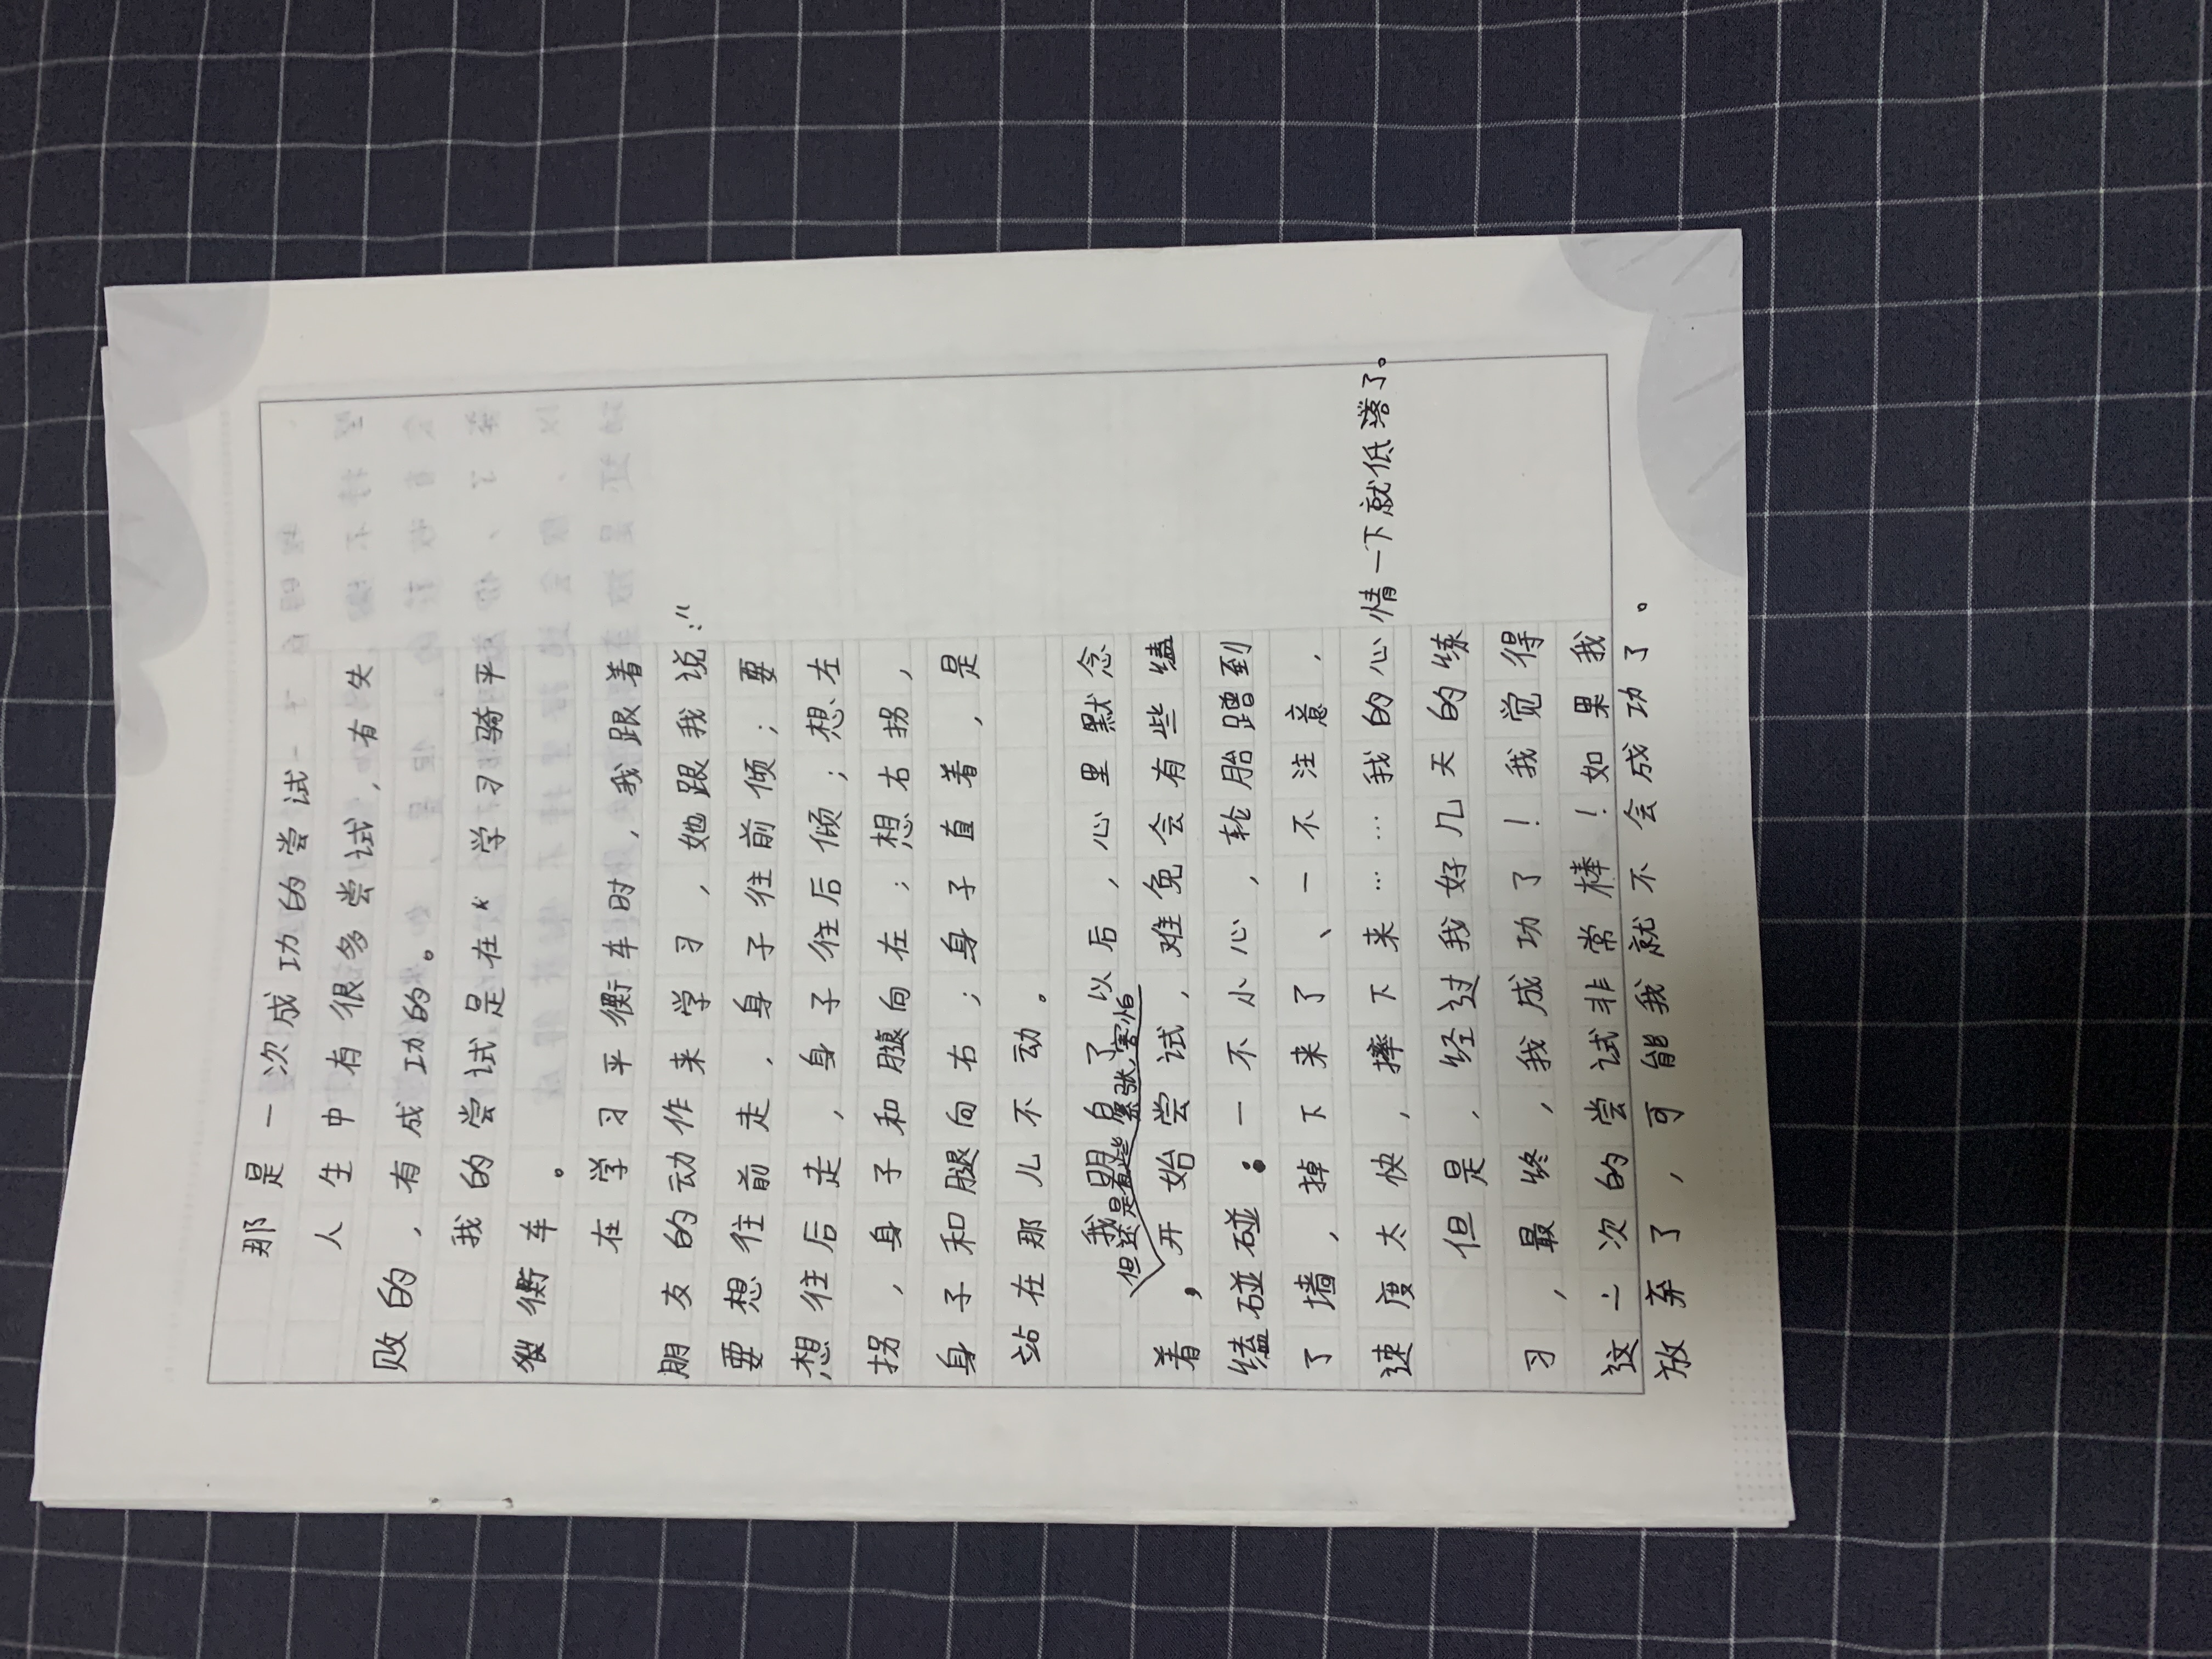 那是一次成功的尝试
人生中有很多尝试，有失
败的，有成功的。
我的尝试是在k学习骑平
衡车。
在学习平衡车时，我跟着
朋友的动作来学习，她跟我说："
要想往前走，身子往前倾；要
想往后走，身子往后倾；想左
拐，身子和腿向左；想右拐，
身子和腿向右；身子直着，是
站在那儿不动。
我明白了以后，心里默念
但还是有些紧张、害怕
着，开始尝试，难免会有些磕
磕碰碰：一不小心，轮胎蹭到
了墙，掉下来了、一不注意，
速度太快，摔下来……我的心情一下就低落了。
但是，经过我好几天的练
习，最终，我成功了！我觉得
这一次的尝试非常棒！如果我
放弃了，可能我就不会成功了。